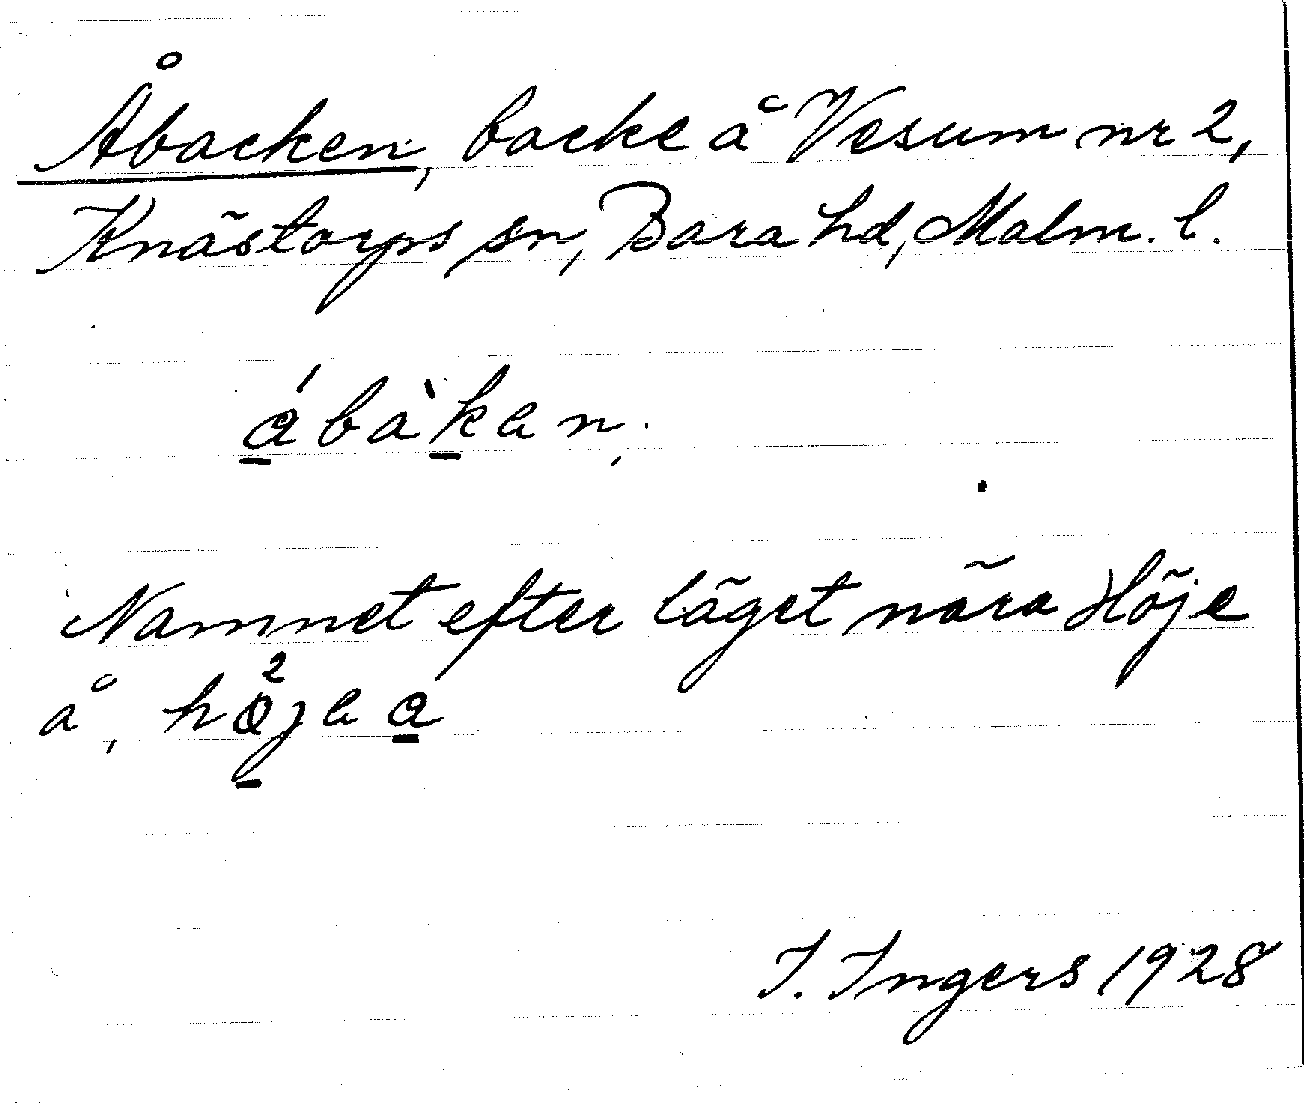 Åbacken, backe å Vesum nr 2,
Knästorps sn, Bara hd, Malm. l.
ábàkan.
Namnet efter läget nära Höje
å, 
I. Ingers 1928